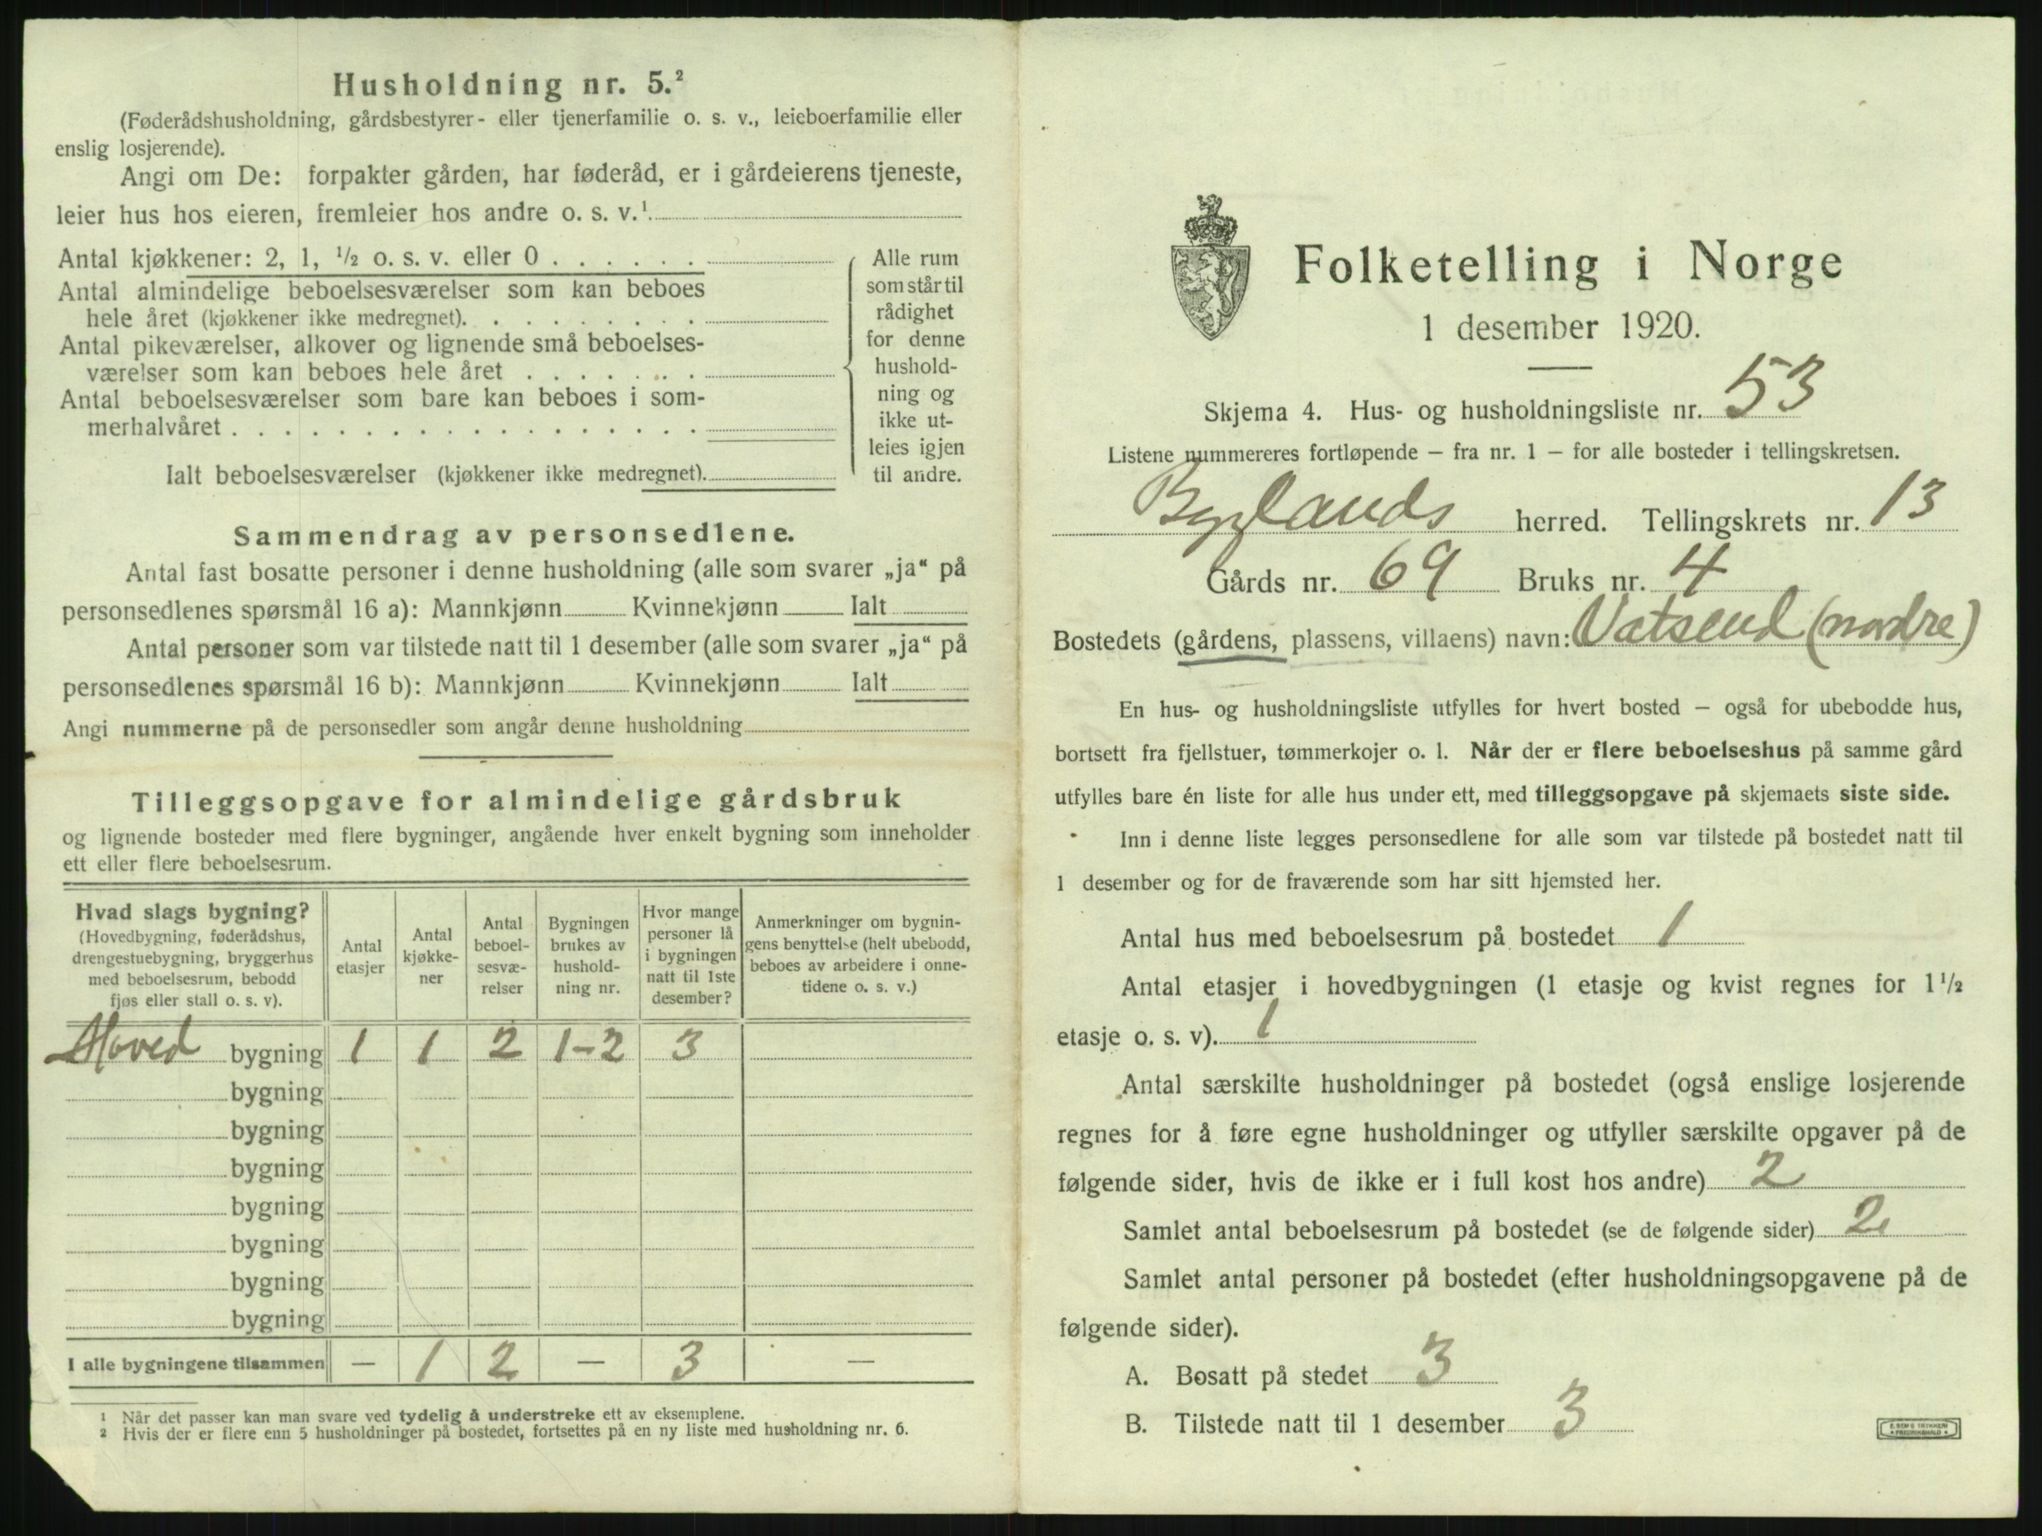 Husholdning nr. 5.²
(Føderådshusholdning, gårdsbestyrer- eller tjenerfamilie o. s. v., leieboerfamilie eller
enslig losjerende).
Angi om De: forpakter gården, har føderåd, er i gårdeierens tjeneste,
leier hus hos eieren, fremleier hos andre o. s. v.¹
Antal kjøkkener: 2, 1, ½ o. s. v. eller 0 . . . . . .
Antal almindelige beboelsesværelser som kan beboes
hele året (kjøkkener ikke medregnet). . . . . . . . .
Antal pikeværelser, alkover og lignende små beboelses-
værelser som kan beboes hele året . . . . . . .
Antal beboelsesværelser som bare kan beboes i som-
merhalvåret . . . . . . . . . . . . . . . . . .
Ialt beboelsesværelser (kjøkkener ikke medregnet).
Alle rum
som står til
rådighet
for denne
hushold-
ning og
ikke ut-
leies igjen
til andre.
Sammendrag av personsedlene.
Antal fast bosatte personer i denne husholdning (alle som svarer „ja“ på
personsedlenes spørsmål 16 a): Mannkjønn Kvinnekjønn Ialt
Antal personer som var tilstede natt til 1 desember (alle som svarer „ja“ på
personsedlenes spørsmål 16 b): Mannkjønn Kvinnekjønn Ialt
Angi nummerne på de personsedler som angår denne husholdning
Tilleggsopgave for almindelige gårdsbruk
og lignende bosteder med flere bygninger, angående hver enkelt bygning som inneholder
ett eller flere beboelsesrum.
Hvad slags bygning?
(Hovedbygning, føderådshus,
drengestuebygning, bryggerhus
med beboelsesrum, bebodd
fjøs eller stall o. s. v).
Antal
etasjer
Antal
kjøkke-
ner
Antal
beboel-
sesvæ-
relser
Bygningen
brukes av
hushold-
ning nr.
Hvor mange
personer lå
i bygningen
natt til 1ste
desember?
Anmerkninger om bygnin-
gens benyttelse (helt ubebodd,
beboes av arbeidere i onne-
tidene o. s. v.)
Hoved bygning 1 1 2 1-2 3
bygning
bygning
bygning
bygning
bygning
bygning
bygning
I alle bygningene tilsammen — 1 2 — 3 —
¹ Når det passer kan man svare ved tydelig å understreke ett av eksemplene.
² Hvis der er flere enn 5 husholdninger på bostedet, fortsettes på en ny liste med husholdning nr. 6.
Folketelling i Norge
1 desember 1920.
Skjema 4. Hus- og husholdningsliste nr. 53
Listene nummereres fortløpende — fra nr. 1 — for alle bosteder i tellingskretsen.
Byglands herred. Tellingskrets nr. 13
Gårds nr. 69 Bruks nr. 4
Bostedets (gårdens, plassens, villaens) navn: Vatsend (nordre)
En hus- og husholdningsliste utfylles for hvert bosted — også for ubebodde hus,
bortsett fra fjellstuer, tømmerkojer o. l. Når der er flere beboelseshus på samme gård
utfylles bare én liste for alle hus under ett, med tilleggsopgave på skjemaets siste side.
Inn i denne liste legges personsedlene for alle som var tilstede på bostedet natt til
1 desember og for de fraværende som har sitt hjemsted her.
Antal hus med beboelsesrum på bostedet 1
Antal etasjer i hovedbygningen (1 etasje og kvist regnes for 1½
etasje o. s. v). 1
Antal særskilte husholdninger på bostedet (også enslige losjerende
regnes for å føre egne husholdninger og utfyller særskilte opgaver på de
følgende sider, hvis de ikke er i full kost hos andre) 2
Samlet antal beboelsesrum på bostedet (se de følgende sider) 2
Samlet antal personer på bostedet (efter husholdningsopgavene på de
følgende sider).
A. Bosatt på stedet 3
B. Tilstede natt til 1 desember 3